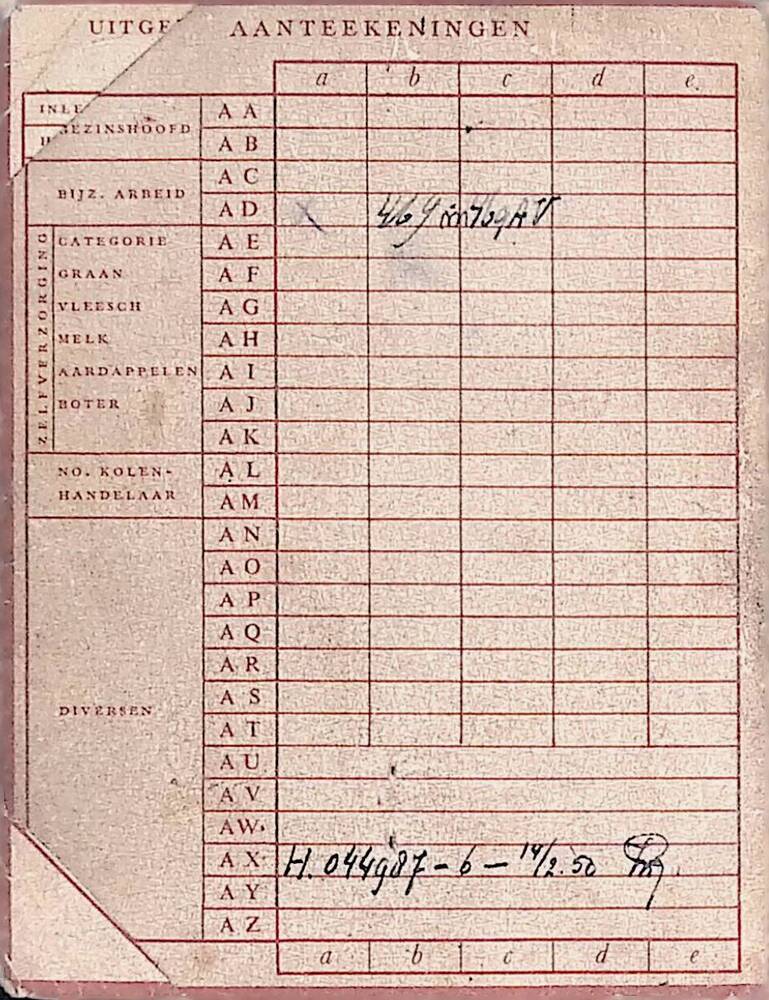 UITGE AANTEEKENINGEN
a b c d e
INLE
GEZINSHOOFD
A A
A B
BIJZ. ARBEID
A C
A D
ZELFVERZORGING
CATEGORIE A E
GRAAN A F
VLEESCH A G
MELK A H
AARDAPPELEN A I
BOTER A J
A K
NO. KOLEN-
HANDELAAR
A L
A M
DIVERSEN
A N
A O
A P
A Q
A R
A S
A T
A U
A V
A W
A X H. 044987 - 6 - 14/2.50
A Y
A Z
a b c d e